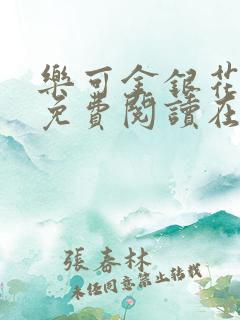 樂可金銀花
免費閱讀在
張春林
未經同意禁止轉載